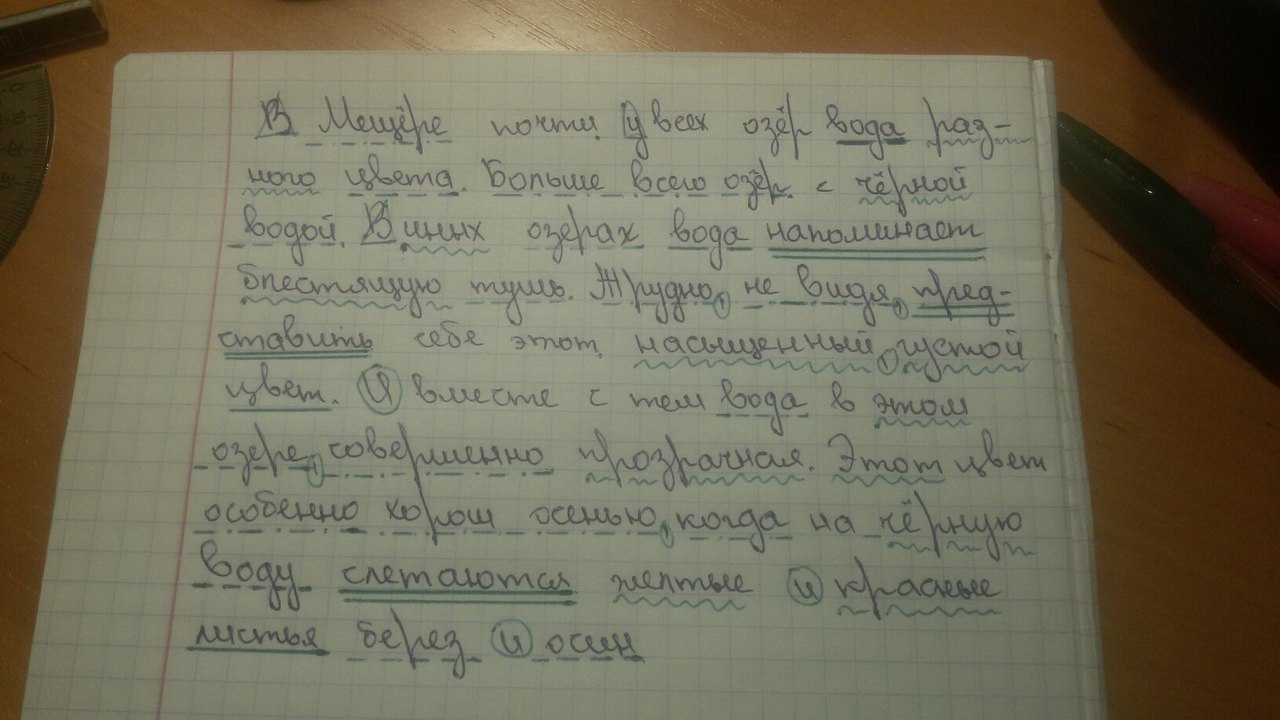 В Мещёре почти у всех озёр вода раз-
ного цвета. Больше всего озёр с чёрной
водой. В иных озерах вода напоминает
блестящую тушь. Трудно, не видя, пред-
ставить себе этот насыщенный, густой
цвет. И вместе с тем вода в этом
озере, совершенно прозрачная. Этот цвет
особенно хорош осенью, когда на чёрную
воду слетаются желтые и красные
листья берез и осин